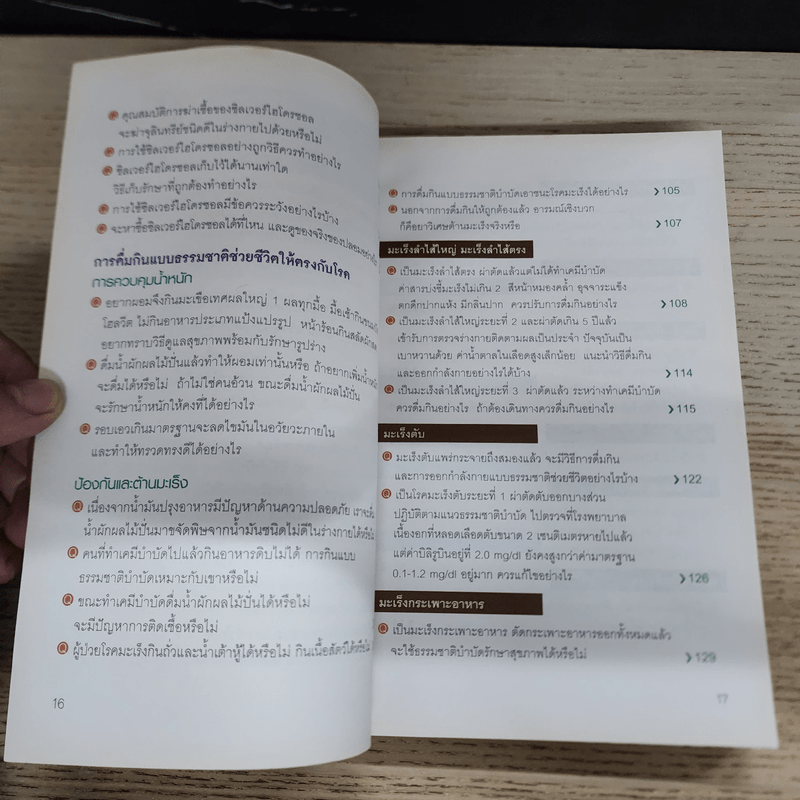 คุณสมบัติการฆ่าเชื้อของซิลเวอร์ไฮโดรซอล
จะฆ่าจุลินทรีย์ชนิดดีในร่างกายไปด้วยหรือไม่
การใช้ซิลเวอร์ไฮโดรซอลอย่างถูกวิธีควรทำอย่างไร
ซิลเวอร์ไฮโดรซอลเก็บไว้ได้นานเท่าใด
วิธีเก็บรักษาที่ถูกต้องทำอย่างไร
การใช้ซิลเวอร์ไฮโดรซอลมีข้อควรระวังอย่างไรบ้าง
จะหาซื้อซิลเวอร์ไฮโดรซอลได้ที่ไหน และดูของจริงของปลอมอย่างไร
การดื่มกินแบบธรรมชาติช่วยชีวิตให้ตรงกับโรค
การควบคุมน้ำหนัก
อยากผอมจึงกินมะเขือเทศผลใหญ่ 1 ผลทุกมื้อ มื้อเช้ากินขนมปัง
โฮลวีต ไม่กินอาหารประเภทแป้งแปรรูป หน้าร้อนกินสลัดผักสด
อยากทราบวิธีดูแลสุขภาพพร้อมกับรักษารูปร่าง
ดื่มน้ำผักผลไม้ปั่นแล้วทำให้ผอมเท่านั้นหรือ ถ้าอยากเพิ่มน้ำหนัก
จะดื่มได้หรือไม่ ถ้าไม่ใช่คนอ้วน ขณะดื่มน้ำผักผลไม้ปั่น
จะรักษาน้ำหนักให้คงที่ได้อย่างไร
รอบเอวเกินมาตรฐานจะลดไขมันในอวัยวะภายใน
และทำให้ทรวดทรงดีได้อย่างไร
ป้องกันและต้านมะเร็ง
เนื่องจากน้ำมันปรุงอาหารมีปัญหาด้านความปลอดภัย เราจะดื่ม
น้ำผักผลไม้ปั่นมาขจัดพิษจากน้ำมันชนิดไม่ดีในร่างกายได้หรือไม่
คนที่ทำเคมีบำบัดไปแล้วกินอาหารดิบไม่ได้ การกินแบบ
ธรรมชาติบำบัดเหมาะกับเขาหรือไม่
ขณะทำเคมีบำบัดดื่มน้ำผักผลไม้ปั่นได้หรือไม่
จะมีปัญหาการติดเชื้อหรือไม่
ผู้ป่วยโรคมะเร็งกินถั่วและน้ำเต้าหู้ได้หรือไม่ กินเนื้อสัตว์ได้หรือไม่
16
การดื่มกินแบบธรรมชาติบำบัดเอาชนะโรคมะเร็งได้อย่างไร ❯105
นอกจากการดื่มกินให้ถูกต้องแล้ว อารมณ์เชิงบวก
ก็คือยาวิเศษต้านมะเร็งจริงหรือ ❯107
มะเร็งลำไส้ใหญ่ มะเร็งลำไส้ตรง
เป็นมะเร็งลำไส้ตรง ผ่าตัดแล้วแต่ไม่ได้ทำเคมีบำบัด
ค่าสารบ่งชี้มะเร็งไม่เกิน 2 สีหน้าหมองคล้ำ อุจจาระแข็ง
ตกดึกปากแห้ง มีกลิ่นปาก ควรปรับการดื่มกินอย่างไร ❯108
เป็นมะเร็งลำไส้ใหญ่ระยะที่ 2 และผ่าตัดเกิน 5 ปีแล้ว
เข้ารับการตรวจร่างกายติดตามผลเป็นประจำ ปัจจุบันเป็น
เบาหวานด้วย ค่าน้ำตาลในเลือดสูงเล็กน้อย แนะนำวิธีดื่มกิน
และออกกำลังกายอย่างไรได้บ้าง ❯114
เป็นมะเร็งลำไส้ใหญ่ระยะที่ 3 ผ่าตัดแล้ว ระหว่างทำเคมีบำบัด
ควรดื่มกินอย่างไร ถ้าต้องเดินทางควรดื่มกินอย่างไร ❯115
มะเร็งตับ
มะเร็งตับแพร่กระจายถึงสมองแล้ว จะมีวิธีการดื่มกิน
และการออกกำลังกายแบบธรรมชาติช่วยชีวิตอย่างไรบ้าง ❯122
เป็นโรคมะเร็งตับระยะที่ 1 ผ่าตัดตับออกบางส่วน
ปฏิบัติตามแนวธรรมชาติบำบัด ไปตรวจที่โรงพยาบาล
เนื้องอกที่หลอดเลือดตับขนาด 2 เซนติเมตรหายไปแล้ว
แต่ค่าบิลิรูบินอยู่ที่ 2.0 mg/dl ยังคงสูงกว่าค่ามาตรฐาน
0.1-1.2 mg/dl อยู่มาก ควรแก้ไขอย่างไร ❯126
มะเร็งกระเพาะอาหาร
เป็นมะเร็งกระเพาะอาหาร ตัดกระเพาะอาหารออกทั้งหมดแล้ว
จะใช้ธรรมชาติบำบัดรักษาสุขภาพได้หรือไม่ ❯129
17